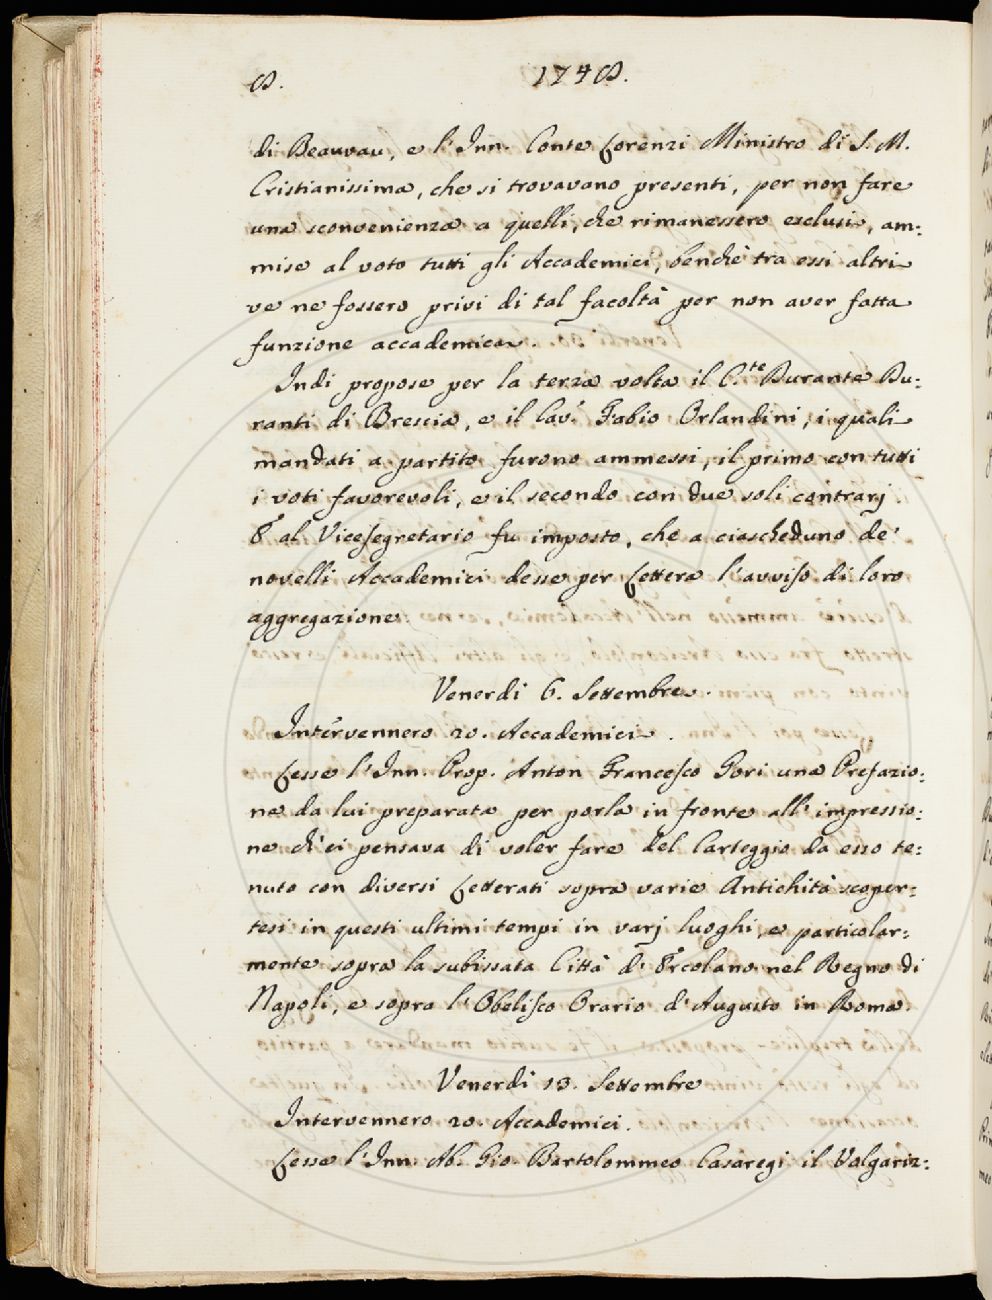 8. 1748.
di Beauvau, e l'Inn. Conte Lorenzi Ministro di S. M.
Cristianissima, che si trovavano presenti, per non fare
una sconvenienza a quelli, che rimanessero esclusi, am:
mise al voto tutti gli Accademici, benchè tra essi altri
ve ne fossero privi di tal facoltà per non aver fatta
funzione accademica.
Indi propose per la terza volta il C.te Durante Du:
ranti di Brescia, e il Cav.r Fabio Orlandini, i quali
mandati a partito furono ammessi, il primo con tutti
i voti favorevoli, e il secondo con due soli contrarj.
E al Vicesegretario fu imposto, che a ciascheduno de'
novelli Accademici desse per Lettera l'avviso di loro
aggregazione.
Venerdì 6. Settembre.
Intervennero 20. Accademici.
Lesse l'Inn. Prop. Anton Francesco Gori una Prefazio:
ne da lui preparata per porla in fronte all'impressio:
ne ch'ei pensava di voler fare del Carteggio da esso te:
nuto con diversi Letterati sopra varie Antichità scoper:
tesi in questi ultimi tempi in varj luoghi, e particolar:
mente sopra la subissata Città d'Ercolano nel Regno di
Napoli, e sopra l'Obelisco Orario d'Augusto in Roma.
Venerdì 13. Settembre
Intervennero 20. Accademici.
Lesse l'Inn. Ab. Gio. Bartolommeo Casaregi il Volgariz: